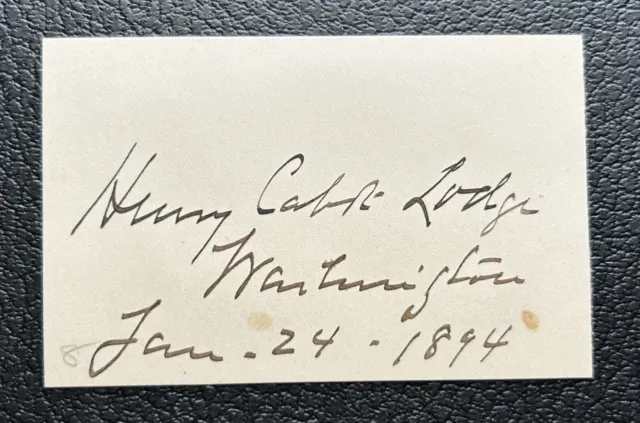 Henry Cabot Lodge
Washington
Jan. 24 - 1894
8